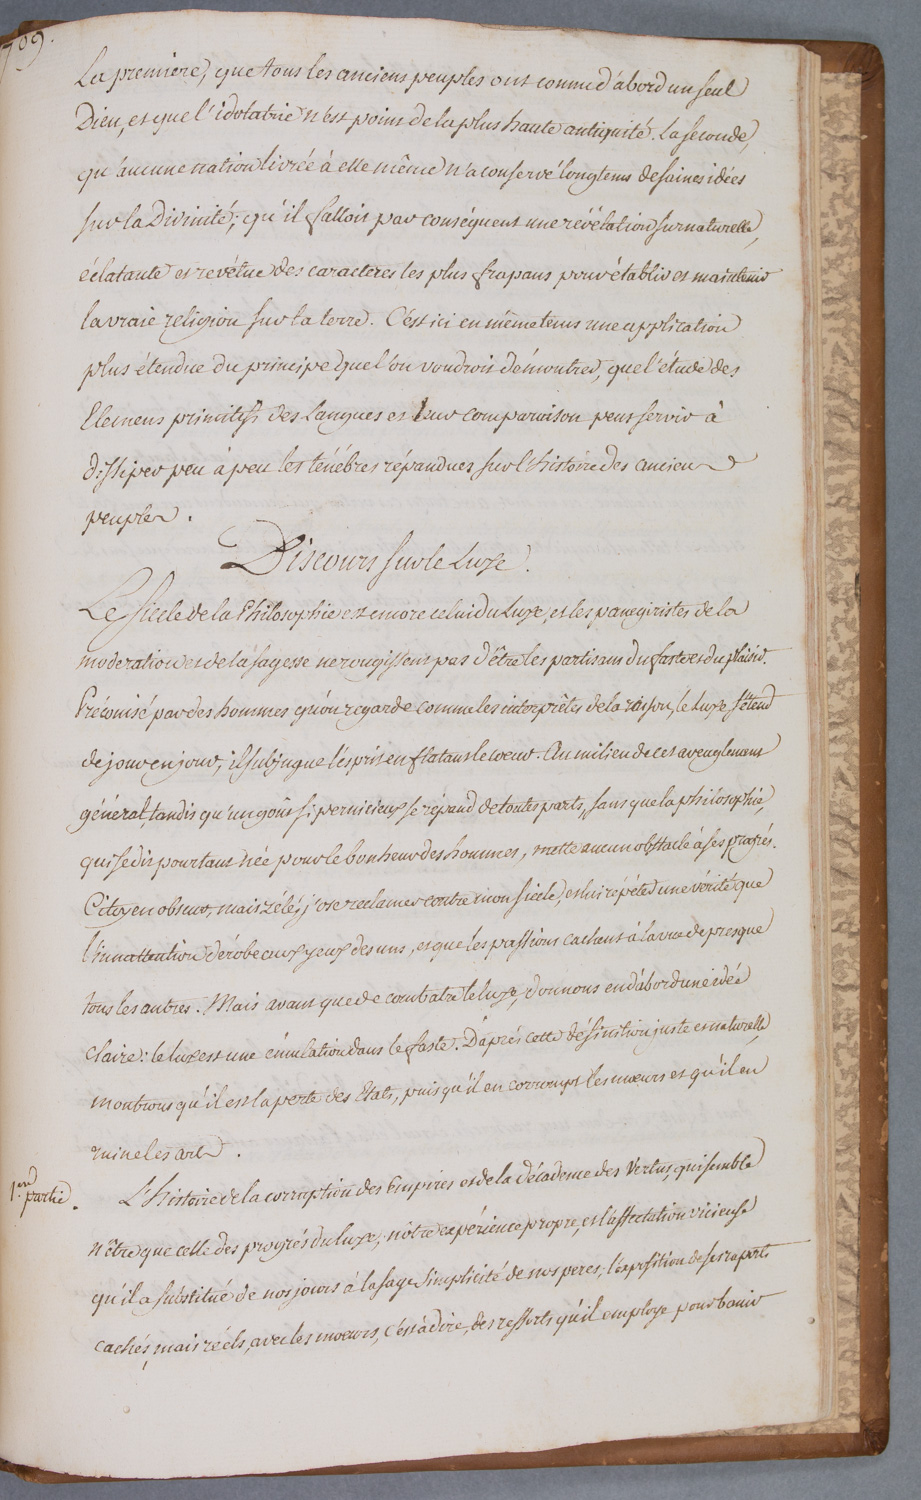 709.
La premiere, que tous les anciens peuples ont connu d'abord un seul
Dieu, et que l'idolatrie n'est point de la plus haute antiquité. La seconde,
qu'aucune nation livrée à elle même n'a conservé longtems de saines idées
sur la Divinité; qu'il falloit par conséquent une révélation surnaturelle,
éclatante et revétue des caracteres les plus frapans pour établir et maintenir
la vraie religion sur la terre. C'est ici en même tems une application
plus étendue du principe que l'on voudroit démontrer, que l'étude des
Elemens primitifs des Langues et leur comparaison peut servir à
dissiper peu à peu les tenébres répandues sur l'histoire des anciens
peuples.
Discours sur le Luxe.
Le Siecle de la Philosophie est encore celui du Luxe, et les panegiristes de la
moderation et de la sagesse ne rougissent pas d'être les partisans du faste et du plaisir.
Préconisé par des hommes qu'on regarde comme les interprêtes de la raison, le Luxe s'étend
de jour en jour, il subjugue l'esprit en flatant le coeur. Au milieu de ces aveuglement
général, tandis qu'un goût si pernicieux se répand de toutes parts, sans que la philosophie,
qui se dit pourtant née pour le bonheur des hommes, mette aucun obstacle à ses progrés.
Citoyen obscur, mais zélé, j'ose reclamer contre mon siecle, et lui répéter une vérité que
l'innattention dérobe aux yeux des uns, et que les passions cachent à la vue de presque
tous les autres. Mais avant que de combatre le luxe, donnons en d'abord une idée
claire: le luxe est une émulation dans le faste. D'aprés cette définition juste et naturelle,
montrons qu'il est la perte des Etats, puisqu'il en corrompt les moeurs et qu'il en
ruine les arts.
1.ere partie.
L'histoire de la corruption des Empires et de la décadence des Vertus, qui semble
n'être que celle des progrés du luxe; nôtre expérience propre, et l'affectation vicieuse
qu'il a substitué de nos jours à la sage simplicité de nos peres; l'exposition de ses raports
cachés, mais réels, avec les moeurs, c'est à dire, des ressorts qu'il employe pour banir